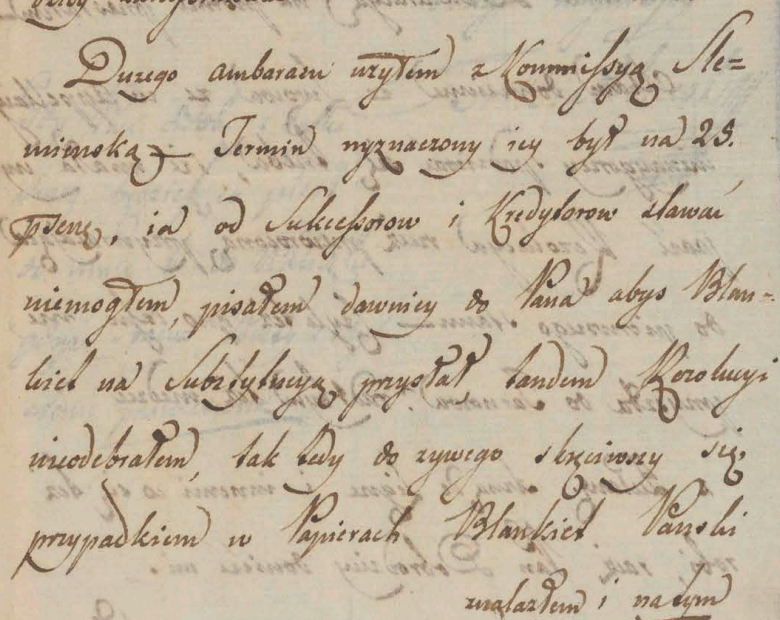 Duzego ambarasu użyłem z Kommissyą Sle=
mienską Termin wyznaczony iey był na 25.
psene, ia od Sukcessorow i Kredytorow stawać
niemogłem, pisałem dawniey do Pana abys Blan=
kiet na Substytucyą przysłał tandem Rezolucyi
nieodebrałem, tak tedy do zywego skręciwszy się
przypadkiem w Papierach Blankiet Panski
znalazłem i na tym